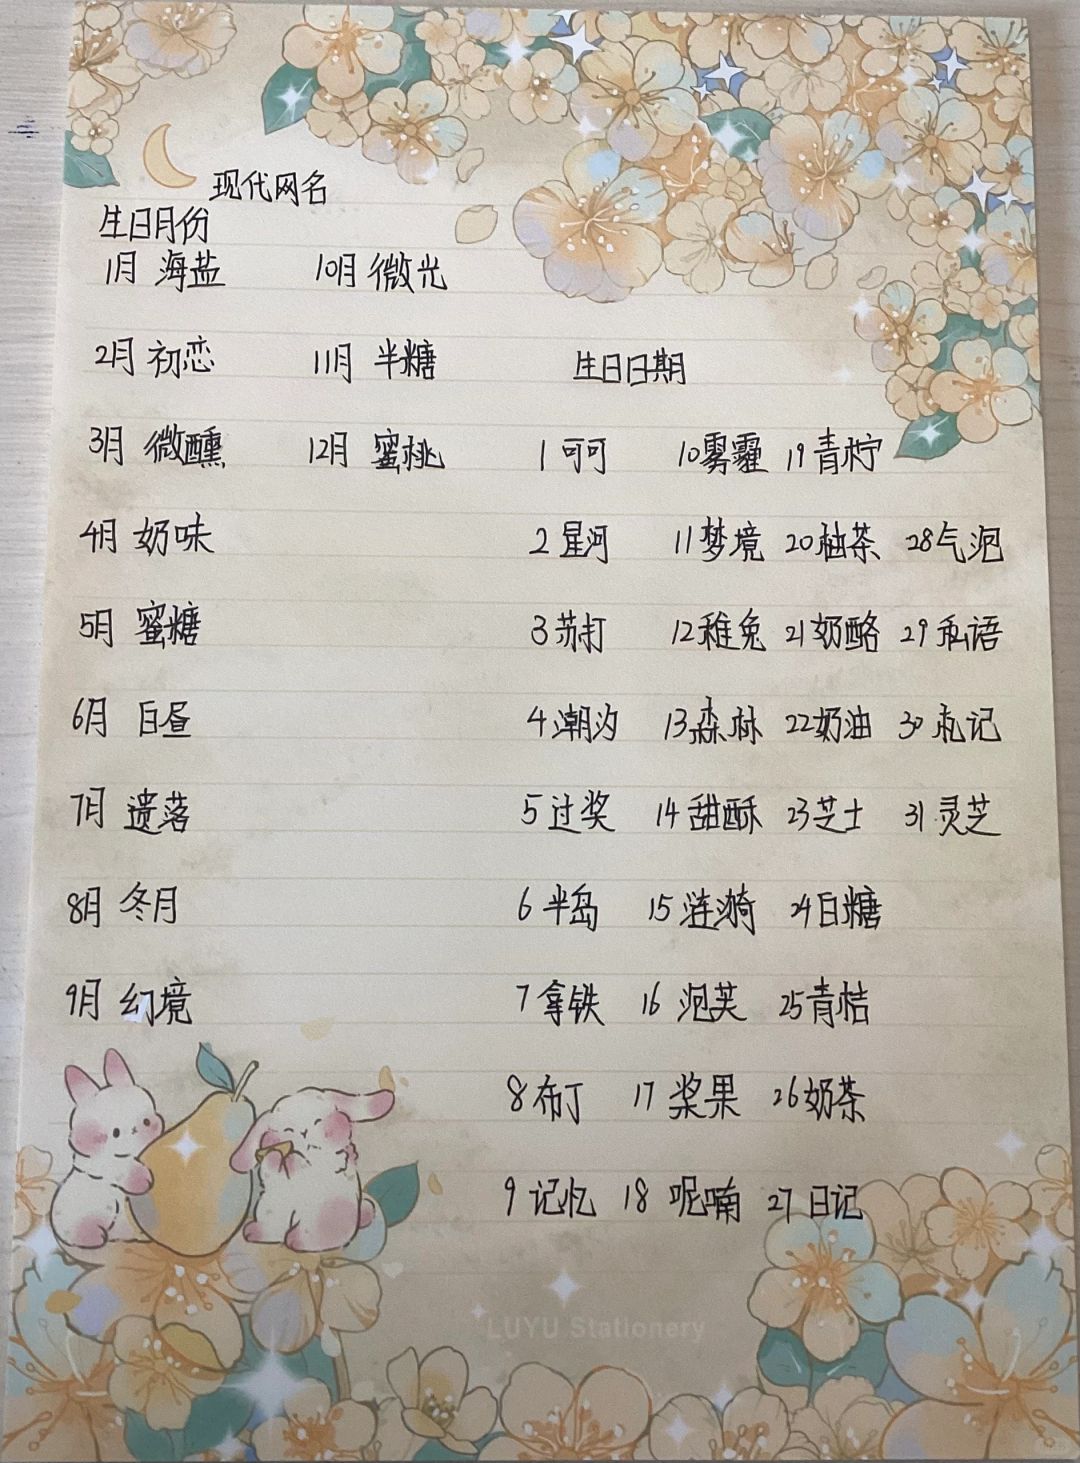 现代网名
生日月份
1月 海盐 10月 微光
2月 初恋 11月 半糖 生日日期
3月 微醺 12月 蜜桃 1 可可 10雾霾 19青柠
4月 奶味 2 星河 11梦境 20柚茶 28气泡
5月 蜜糖 3 苏打 12稚兔 21奶酪 29私语
6月 白昼 4潮汐 13森林 22奶油 30札记
7月 遗落 5过奖 14甜酥 23芝士 31灵芝
8月 冬月 6半岛 15涟漪 24白糖
9月 幻境 7拿铁 16泡芙 25青桔
8布丁 17桨果 26奶茶
9记忆 18呢喃 27日记
LUYU Stationery